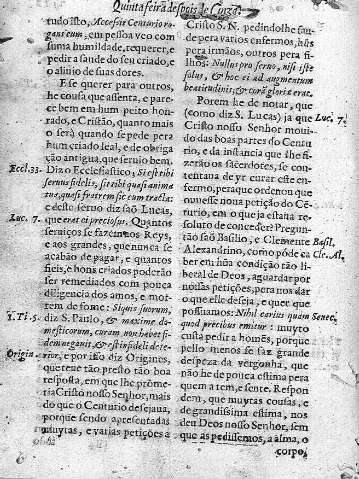 Quinta feira despois de Cinza.
tudo isto, Accessit Centurio ro-
gans eum, eu pessoa veo com
suma humildade, requerer, e
pedir a saude do seu criado, e
o aliuio de suas dores.
E se querer para outros,
he cousa que assenta, e pare-
ce bem em hum peito hon-
rado, e Cristão, quanto mais
o será quando se pede pera
hum criado leal, e de obriga-
ção antigua, que seruio bem.
Eccl. 33. Diz o Ecclesiastico; Si est tibi
seruus fidelis, sit tibi quasi anima
tua, quasi fratrem sic eum tracta:
e deste seruo diz saõ Lucas,
Luc. 7. que erat ei preciosus. Quantos
seruiços se fazem aos Reys,
e aos grandes, que nunca se
acabão de pagar, e quantos
fieis, e bons criados poderão
ser remediados com pouca
diligencia dos amos, e mor-
rem de fome: Si quis suorum,
1. Ti. 5. diz S. Paulo, & maxime do-
mesticorum, curam non habet fi-
dem negauit, & est infideli dete-
Origin. rior, e por isso diz Origines,
que teue tão presto tão boa
resposta, em que lhe prome-
tia Cristo nosso Senhor, mais
do que o Centurio desejaua,
porque sendo apresentadas
muytas, e varias petições a
Cristo S. N. pedindolhe sau-
de pera varios enfermos, hũs
pera irmãos, outros pera fi-
lhos: Nullus pro seruo, nisi iste
solus, & hoc ei ad augmentum
beatitudinis, & corã gloriæ erat.
Porem he de notar, que
(como diz S. Lucas) ja que Luc. 7.
Cristo nosso Senhor moui-
do das boas partes do Centu
rio, e da instancia que lhe fi-
zerão os sacerdotes, se con-
tentana de yr curar este en-
fermo, pera que ordenou que
ouuesse noua petição do Cẽ-
turio, em o que ja estaua re-
soluto de conceder? Pregun-
tão saõ Basilio, e Clemente Basil.
Alexandrino, como póde ca Cle. Al,
ber em hũa condição tão li-
beral de Deos, aguardar por
nossas petições, pera nos dar
o que elle deseja, e quer que
possuamos: Nihil carius quàm Senec.
quod precibus emitur: muyto
custa pedir a homẽs, porque
pello menos se faz grande
despeza da vergonha, que
não he de pouca estima pera
quem a tem, e sente. Respon
dem, que muytas cousas, e
de grandissima estima, nos
deu Deos nosso Senhor, sem
que as pedissemos, a alma, o
corpo,